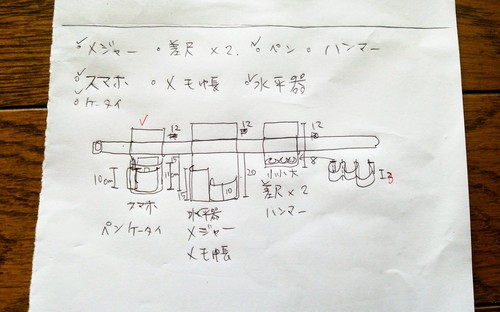 ✓メジャー ○差尺×2. ✓ペン ○ハンマー
✓スマホ ○メモ帳 ✓水平器
○ケータイ
✓
12 12 12
10cm 15 20 10 8 I3
小小大
スマホ 水平器 差尺×2
ペンケータイ メジャー ハンマー
メモ帳